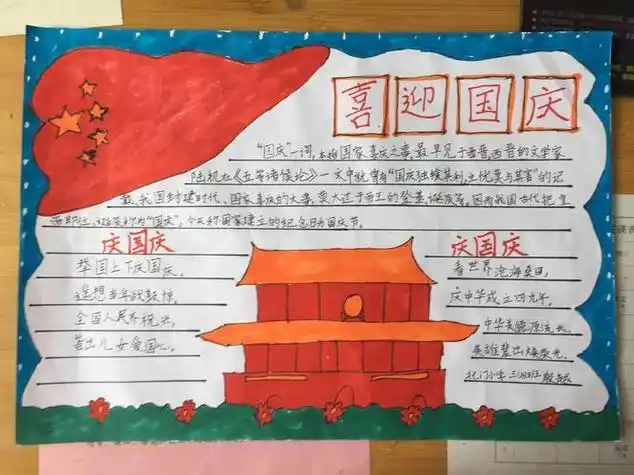 喜迎国庆
"国庆"一词,本指国家喜庆之事,最早见于西晋,西晋的文学家
陆机在《五等诸侯论》一文中就曾有"国庆独飨其利,主忧莫与其害"的记
载,我国封建时代、国家喜庆的大事,莫大过于帝王的登基、诞辰等,因而我国古代把皇
即位、称为"国庆",今天称国家建立的纪念日为国庆节。
庆国庆
举国上下庆国庆,
遥想当年
全国人民齐祝兴,
儿女爱国心。
庆国庆
看世界沧海桑田,
庆中华成立四九年。
中华美德源流长,
英雄辈出焕荣光。
北门小学 三